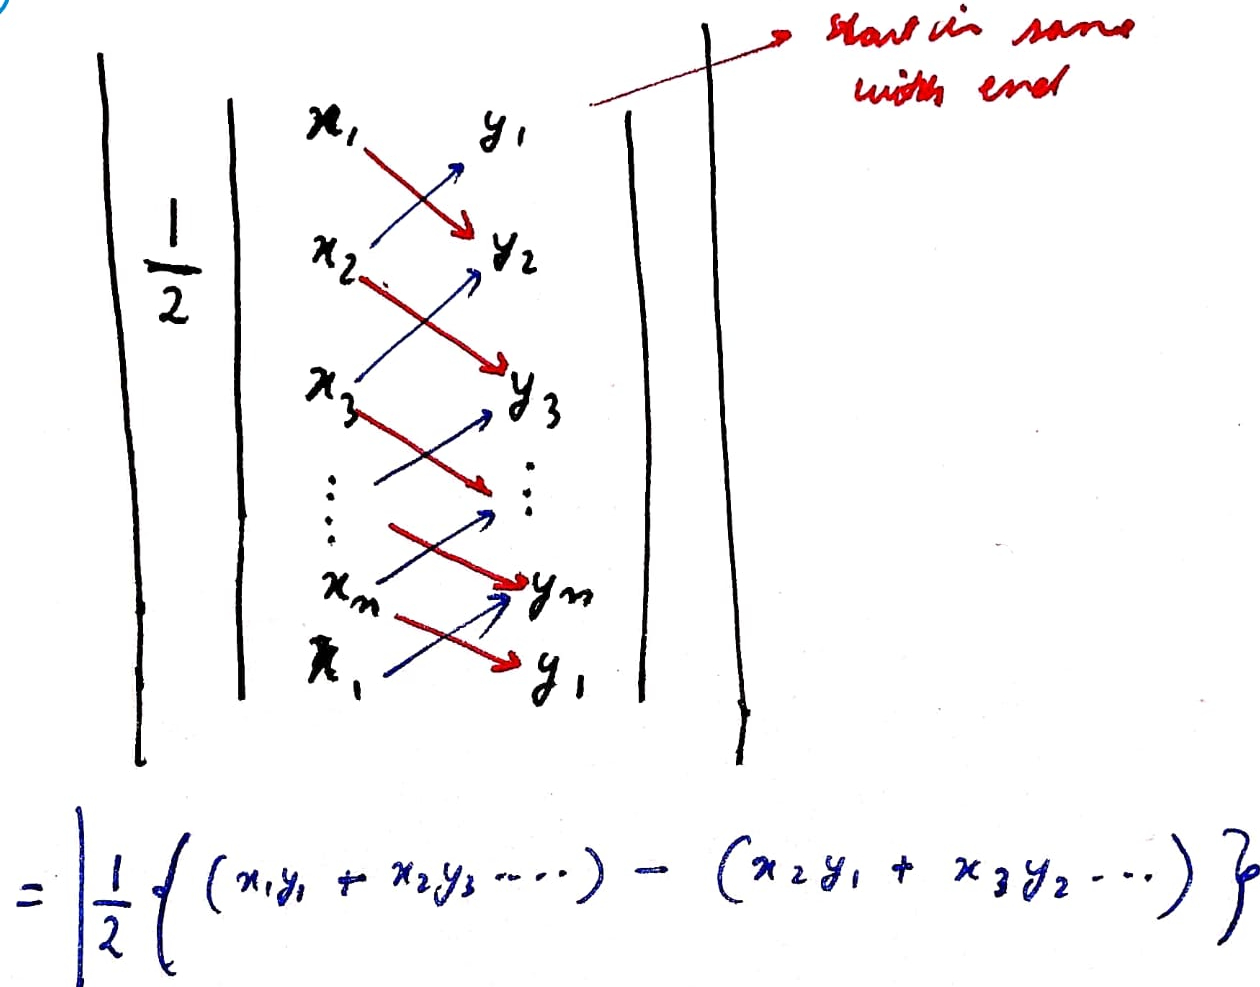 start is same
with end
x₁ y₁
1/2
x₂ y₂
x₃ y₃
⋮ ⋮
xₙ yₙ
x₁ y₁
= | 1/2 { (x₁y₁ + x₂y₃ ....) − (x₂y₁ + x₃y₂ ...) }